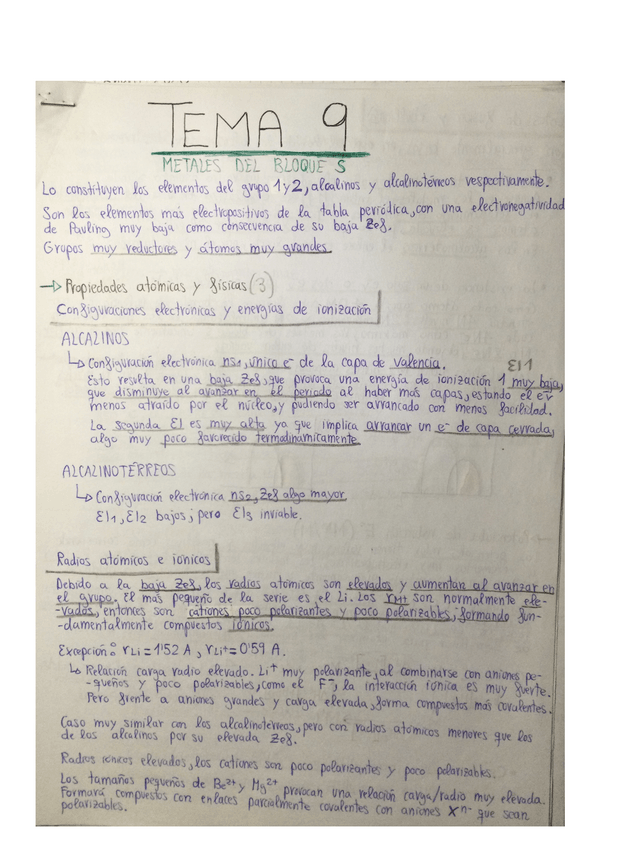 TEMA 9
METALES DEL BLOQUE S
Lo constituyen los elementos del grupo 1 y 2, alcalinos y alcalinotérreos respectivamente.
Son los elementos más electropositivos de la tabla periódica, con una electronegatividad
de Pauling muy baja como consecuencia de su baja Zef.
Grupos muy reductores y átomos muy grandes.
→ Propiedades atómicas y físicas (3)
Configuraciones electrónicas y energías de ionización
ALCALINOS
↳ Configuración electrónica ns1, único e- de la capa de valencia. EI1
Esto resulta en una baja Zef, que provoca una energía de ionización 1 muy baja,
que disminuye al avanzar en el periodo al haber más capas, estando el e-
menos atraído por el núcleo, y pudiendo ser arrancado con menos facilidad.
La segunda EI es muy alta ya que implica arrancar un e- de capa cerrada,
algo muy poco favorecido termodinámicamente.
ALCALINOTÉRREOS
↳ Configuración electrónica ns2, Zef algo mayor.
EI1, EI2 bajos, pero EI3 inviable.
Radios atómicos e iónicos
Debido a la baja Zef, los radios atómicos son elevados y aumentan al avanzar en
el grupo. El más pequeño de la serie es el Li. Los rM+ son normalmente ele-
-vados, entonces son cationes poco polarizantes y poco polarizables, formando fun-
-damentalmente compuestos iónicos.
Excepción: rLi = 1'52 A, rLi+ = 0'59 A.
↳ Relación carga radio elevado. Li+ muy polarizante, al combinarse con aniones pe-
-queños y poco polarizables, como el F-, la interacción iónica es muy fuerte.
Pero frente a aniones grandes y carga elevada, forma compuestos más covalentes.
Caso muy similar con los alcalinotérreos, pero con radios atómicos menores que los
de los alcalinos por su elevada Zef.
Radios iónicos elevados, los cationes son poco polarizantes y poco polarizables.
Los tamaños pequeños de Be2+ y Mg2+ provocan una relación carga/radio muy elevada.
Formará compuestos con enlaces parcialmente covalentes con aniones Xn- que sean
polarizables.